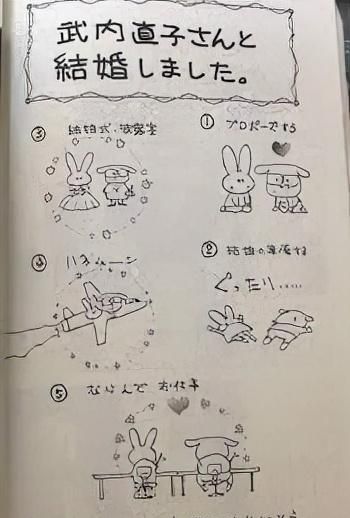 武内直子さんと
結婚しました。
① プロポーズする
② 結婚の準備する
ぐったり……
③ 結婚式・披露宴
④ ハネムーン
⑤ ならんで お仕事